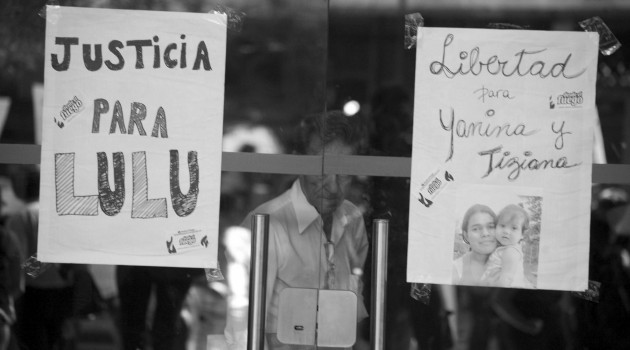 JUSTICIA
PARA
LULU
Libertad
para
Yanina y
Tiziana
fuego